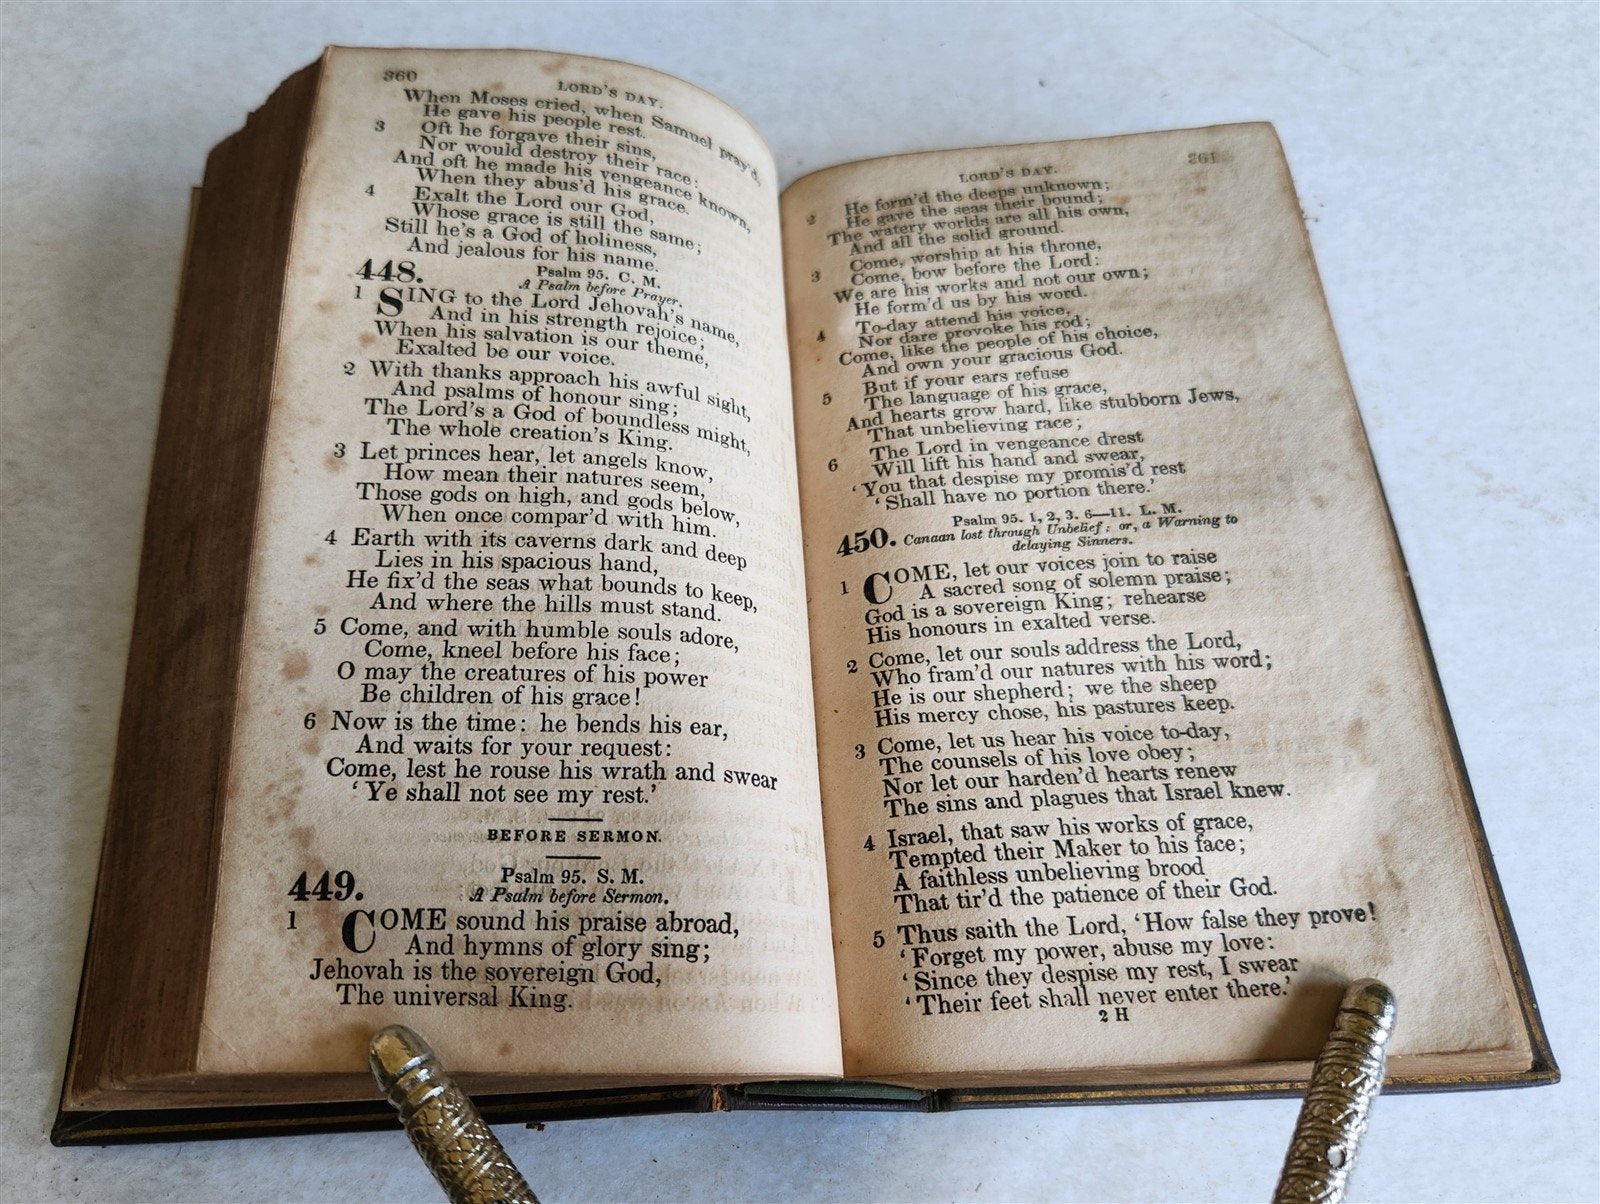 360
LORD'S DAY.
When Moses cried, when Samuel pray'd,
He gave his people rest.
3 Oft he forgave their sins,
Nor would destroy their race:
And oft he made his vengeance known,
When they abus'd his grace.
4 Exalt the Lord our God,
Whose grace is still the same;
Still he's a God of holiness,
And jealous for his name.
448. Psalm 95. C. M.
A Psalm before Prayer.
1 SING to the Lord Jehovah's name,
And in his strength rejoice;
When his salvation is our theme,
Exalted be our voice.
2 With thanks approach his awful sight,
And psalms of honour sing;
The Lord's a God of boundless might,
The whole creation's King.
3 Let princes hear, let angels know,
How mean their natures seem,
Those gods on high, and gods below,
When once compar'd with him.
4 Earth with its caverns dark and deep
Lies in his spacious hand,
He fix'd the seas what bounds to keep,
And where the hills must stand.
5 Come, and with humble souls adore,
Come, kneel before his face;
O may the creatures of his power
Be children of his grace!
6 Now is the time: he bends his ear,
And waits for your request:
Come, lest he rouse his wrath and swear
'Ye shall not see my rest.'
BEFORE SERMON.
449. Psalm 95. S. M.
A Psalm before Sermon.
1 COME sound his praise abroad,
And hymns of glory sing;
Jehovah is the sovereign God,
The universal King.
LORD'S DAY.
361
2 He form'd the deeps unknown;
He gave the seas their bound;
The watery worlds are all his own,
And all the solid ground.
3 Come, worship at his throne,
Come, bow before the Lord:
We are his works and not our own;
He form'd us by his word.
4 To-day attend his voice,
Nor dare provoke his rod;
Come, like the people of his choice,
And own your gracious God.
5 But if your ears refuse
The language of his grace,
And hearts grow hard, like stubborn Jews,
That unbelieving race;
6 The Lord in vengeance drest
Will lift his hand and swear,
'You that despise my promis'd rest
'Shall have no portion there.'
450. Psalm 95. 1, 2, 3. 6—11. L. M.
Canaan lost through Unbelief; or, a Warning to
delaying Sinners.
1 COME, let our voices join to raise
A sacred song of solemn praise;
God is a sovereign King; rehearse
His honours in exalted verse.
2 Come, let our souls address the Lord,
Who fram'd our natures with his word;
He is our shepherd; we the sheep
His mercy chose, his pastures keep.
3 Come, let us hear his voice to-day,
The counsels of his love obey;
Nor let our harden'd hearts renew
The sins and plagues that Israel knew.
4 Israel, that saw his works of grace,
Tempted their Maker to his face;
A faithless unbelieving brood
That tir'd the patience of their God.
5 Thus saith the Lord, 'How false they prove!
'Forget my power, abuse my love:
'Since they despise my rest, I swear
'Their feet shall never enter there.'
2 H